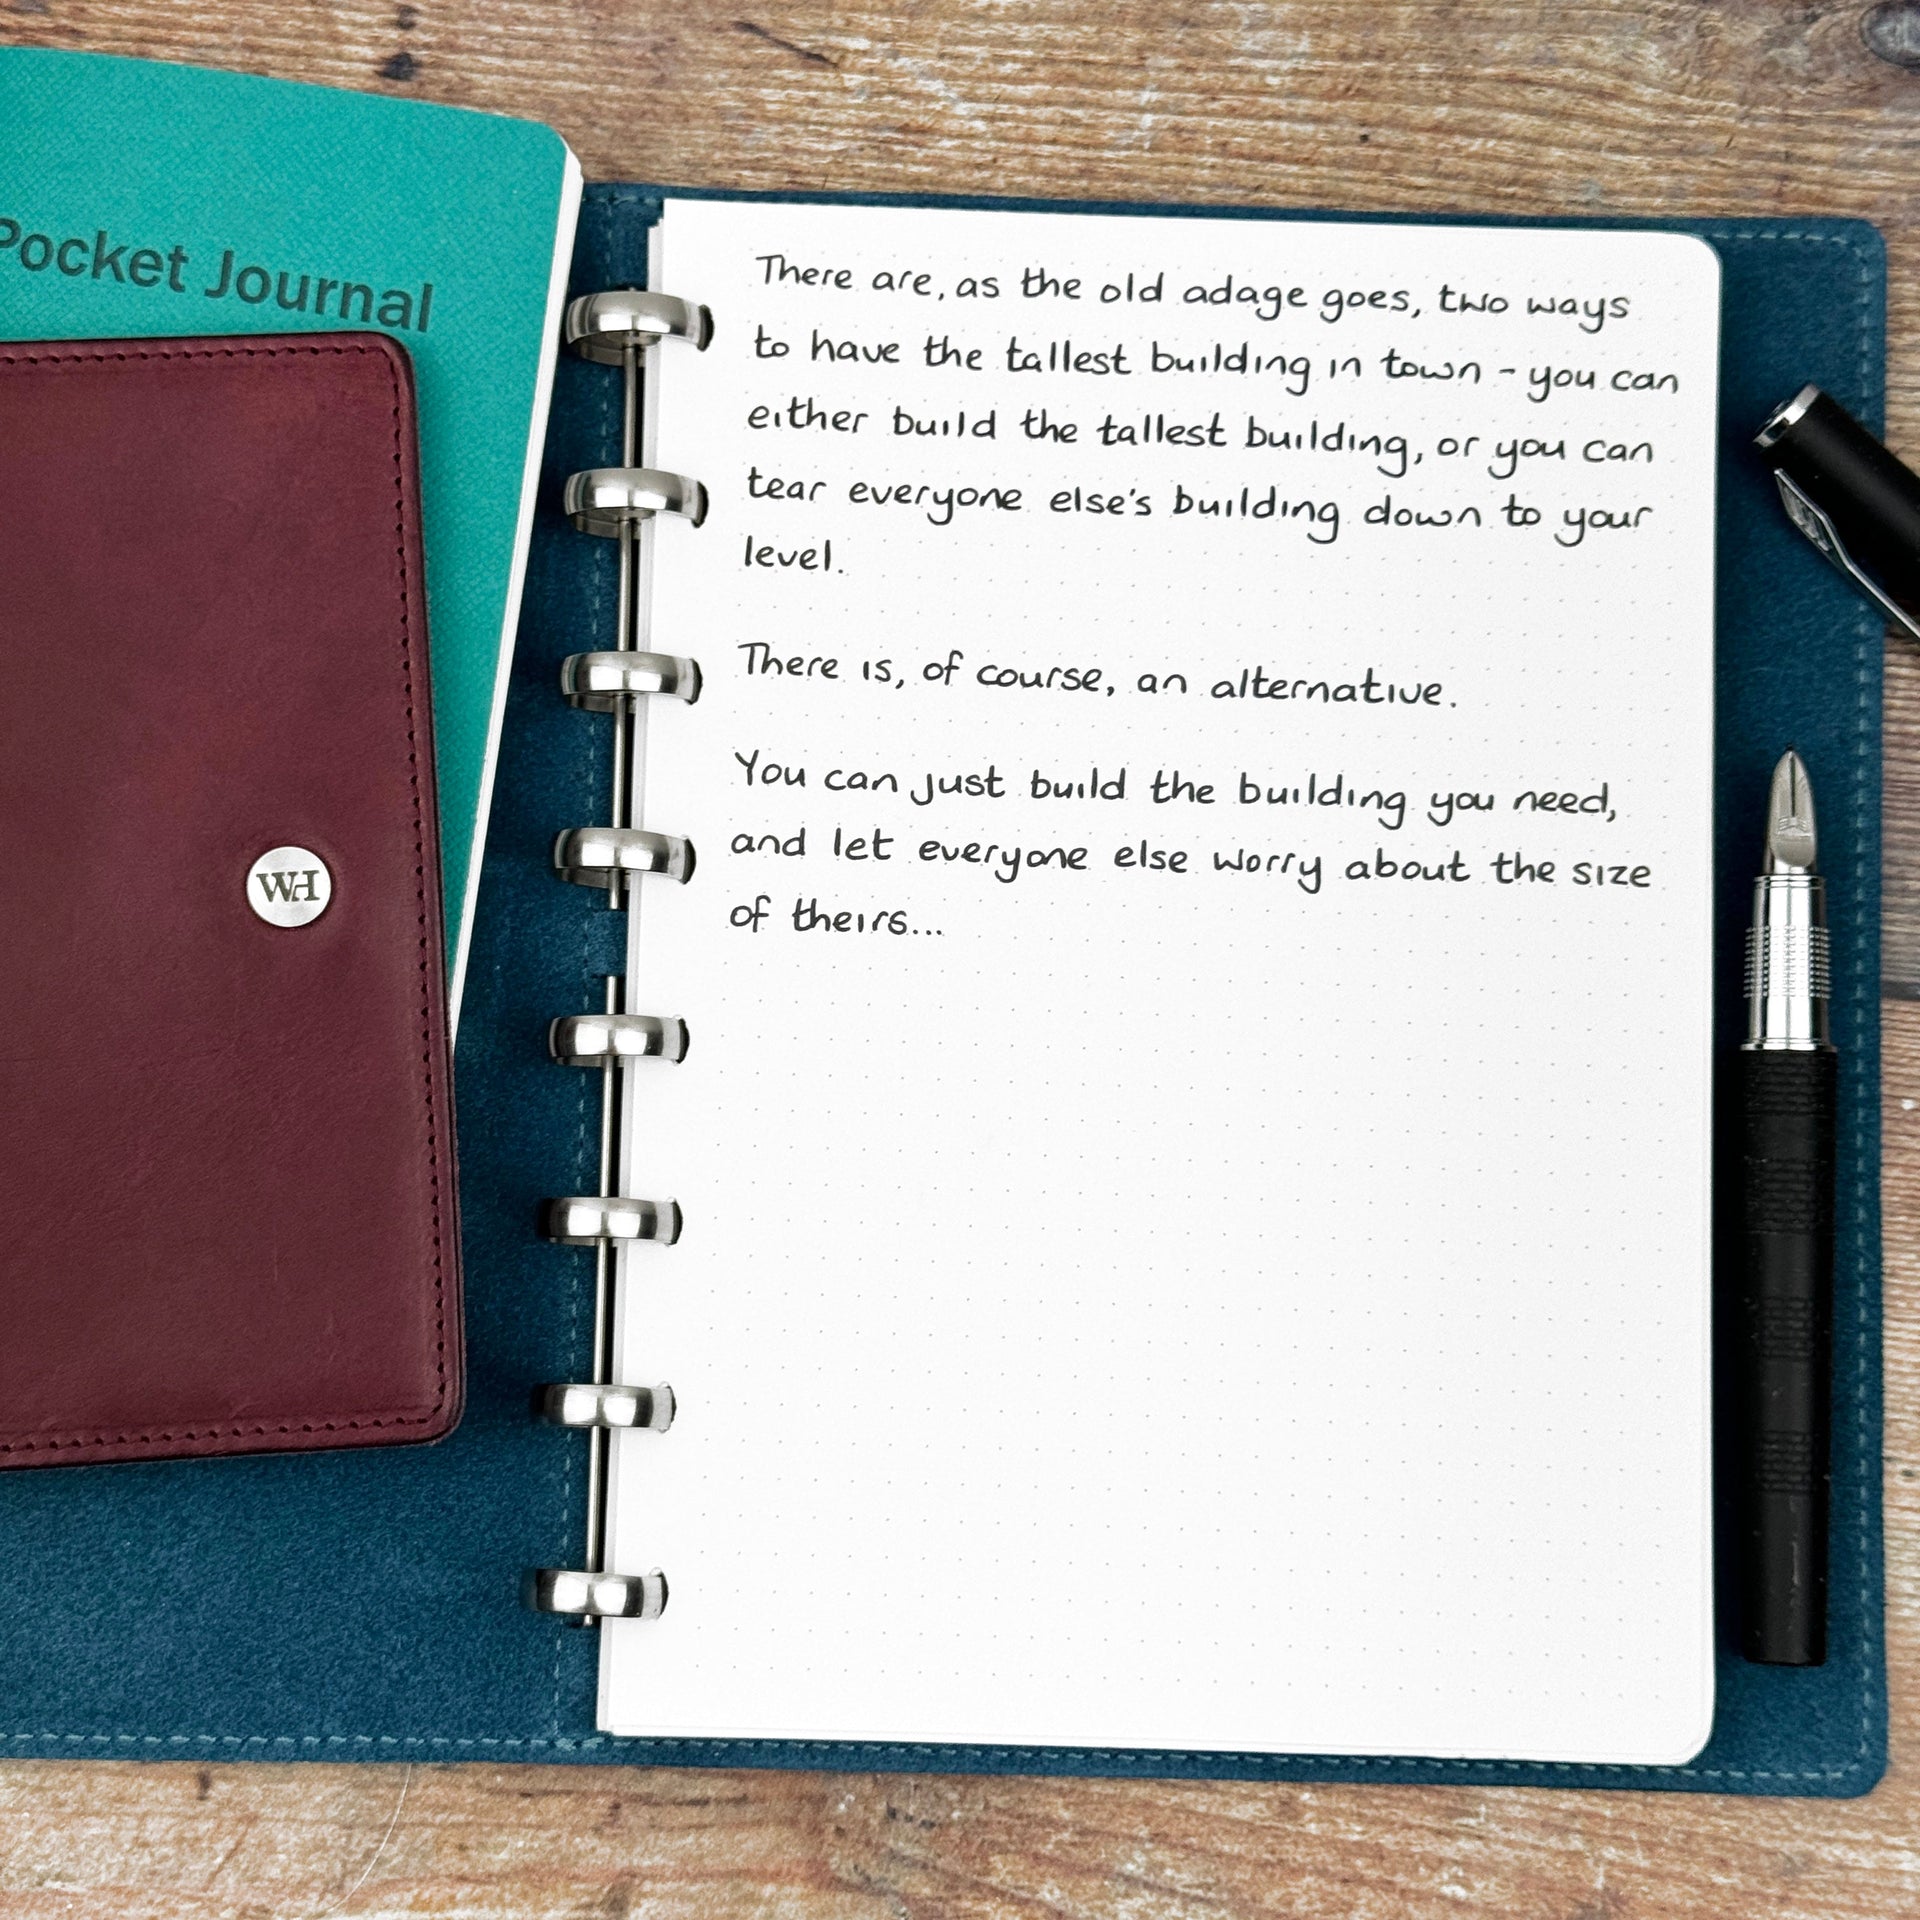 Pocket Journal
WH
There are, as the old adage goes, two ways
to have the tallest building in town - you can
either build the tallest building, or you can
tear everyone else's building down to your
level.
There is, of course, an alternative.
You can just build the building you need,
and let everyone else worry about the size
of theirs...